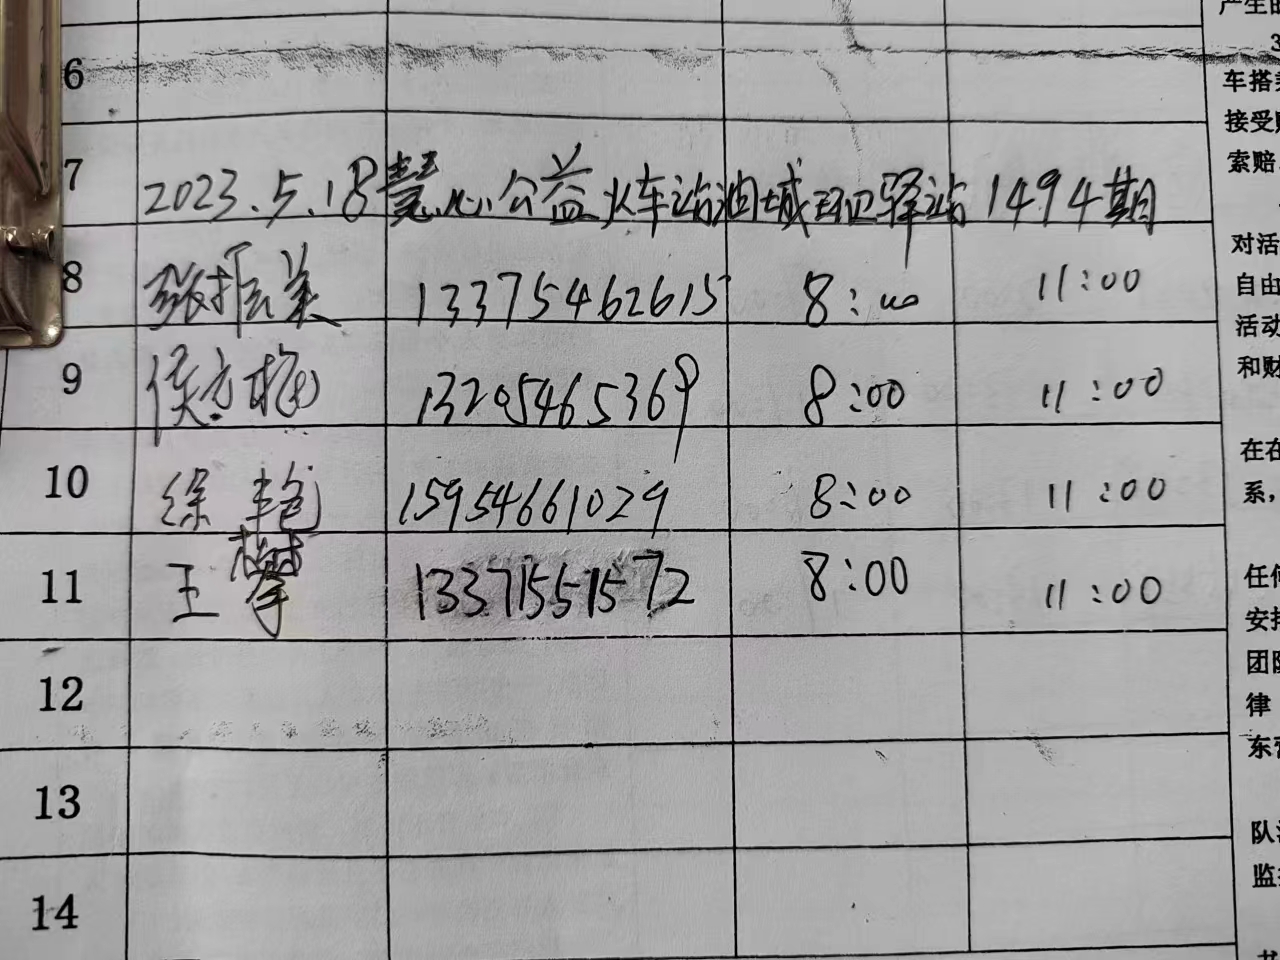 产生的
3
6
车搭乘
接受
索赔
7 2023.5.18慧心公益火车站油城驿站1494期
对活
8 张振美 13375462615 8:00 11:00
自由
活动
和财
9 侯方梅 13205465369 8:00 11:00
在在
10 徐艳 15954661029 8:00 11:00
系，
11 王攀 13371551572 8:00 11:00
任何
安排
团队
律
12
东营
13
队
监
14